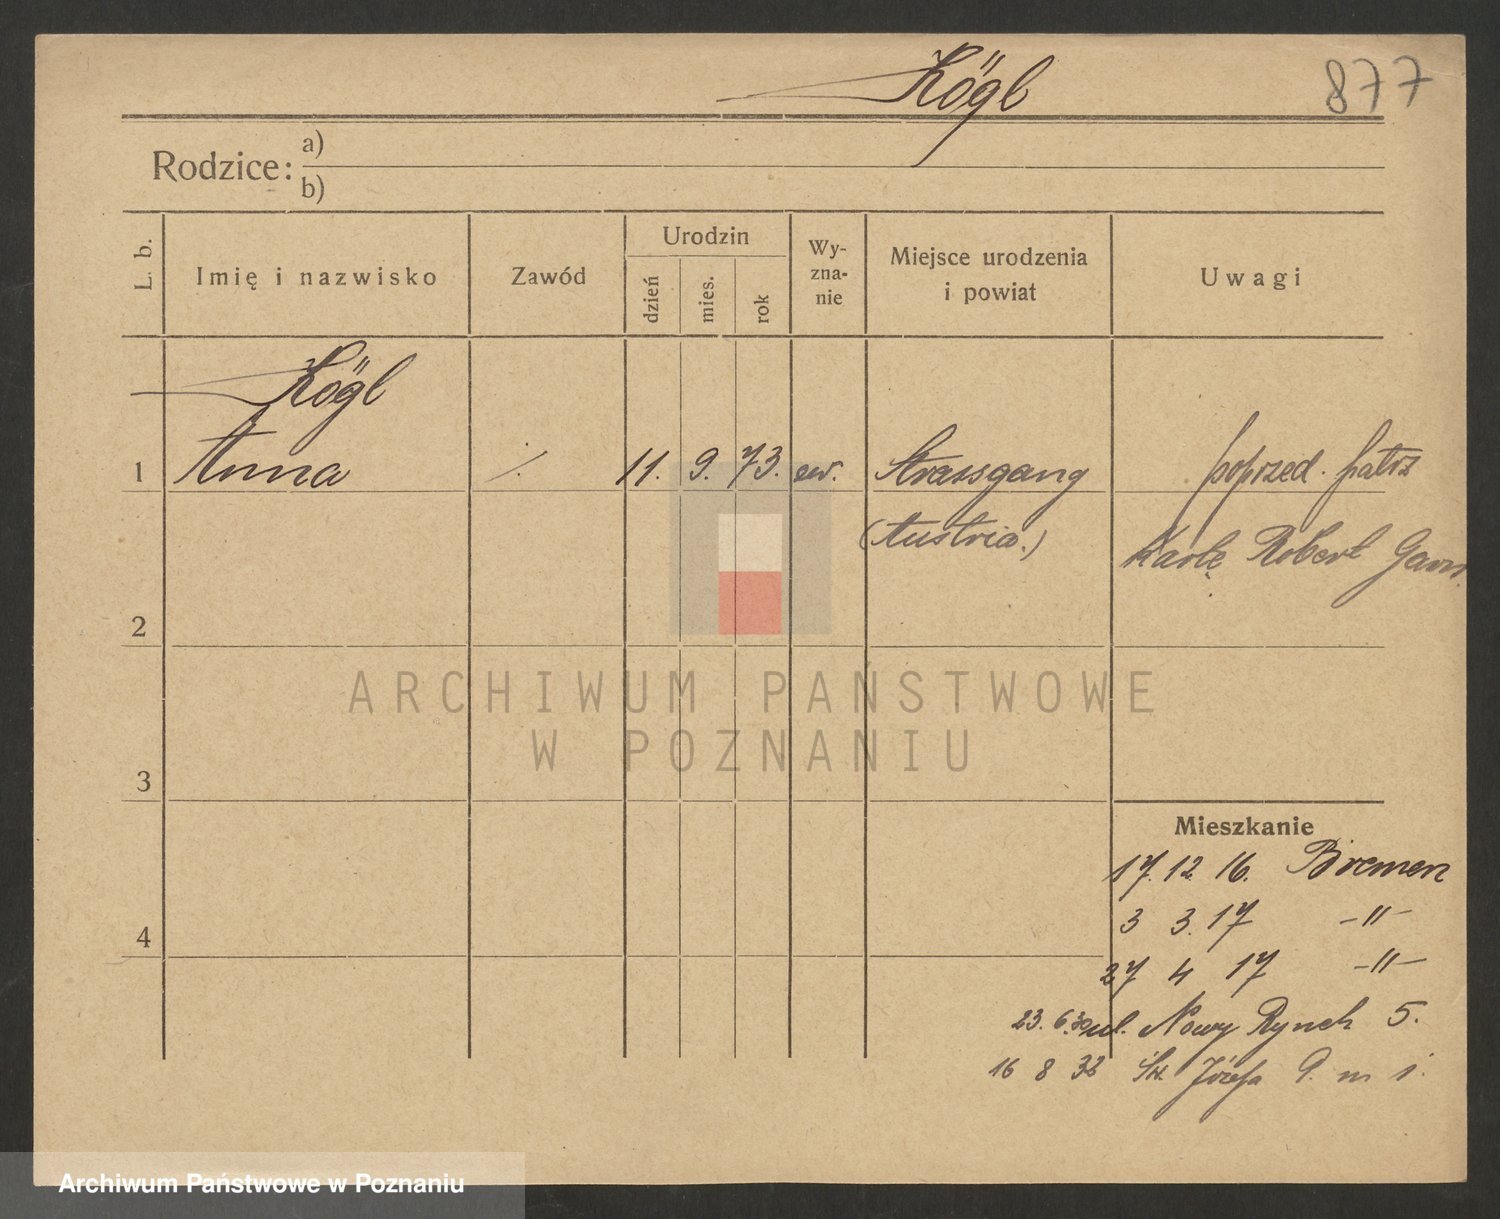 Kögl
877
Rodzice: a)
b)
L. b.
Imię i nazwisko
Zawód
Urodzin
dzień
mies.
rok
Wy-
zna-
nie
Miejsce urodzenia
i powiat
Uwagi
Kögl
1 Anna ./. 11. 9. 73. ew. Strassgang poprzed. patrz
(Austria.) Kartę Robert
2
ARCHIWUM PAŃSTWOWE
W POZNANIU
3
Mieszkanie
17. 12. 16. Bremen
4
3 3. 17 -"-
27 4 17 -"-
23. 6. 30 ul. Nowy Rynek 5.
16 8 Św. Józefa 9. m 1.
Archiwum Państwowe w Poznaniu